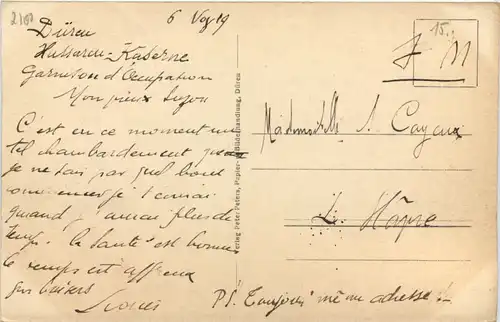 2100
6 Nov 19
Düren
Hussaren-Kaserne
Garnison d'Occupation
Mon vieux
C'est en ce moment un
tel chambardement que
je ne sais par quel bout
commencer je t'écrirai
quand j'aurai plus de
temps. la santé est bonne
le temps est affreux
gros baisers
Verlag Peter Peters, Papier- Bilderhandlung, Düren
15.-
F M
Mademoiselle S. Cayeux
Le Hâvre
P.S. Toujours même adresse !